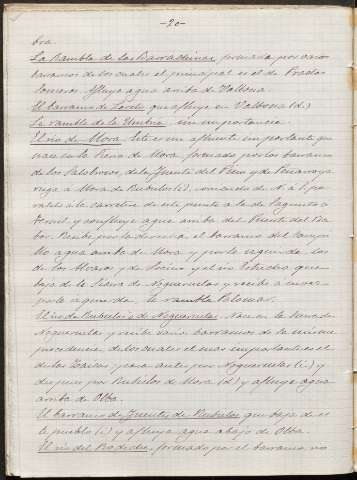 -20-
bra.
La Rambla de las Barrachinas, formada por varios
barrancos de los cuales el principal es el de Prados
afluye agua arriba de Valbona.
El barranco de que afluye en Valbona (d.)
La rambla de la Umbria, sin importancia.
El rio de Mora. Este es un afluente importante que
nace en la Sierra de Mora formado por los barrancos
de los de la Fuente del y de Peñarroya
riega á Mora de Rubielos (i), corriendo de N. á S. para-
lelo á la carretera de este punto á la de Sagunto á
Teruel y confluye agua arriba del Puente del
Recibe por la derecha el barranco del
agua arriba de Mora y por la izquierda los
de los y de y el rio que
baja de la Sierra de Nogueruelas y recibe á su vez
por la izquierda, la rambla Palomar.
El rio de Rubielos ó de Nogueruelas. Nace en la Sierra de
Nogueruelas y recibe varios barrancos de la misma
procedencia, de los cuales el mas importante es el
de las pasa antes por Nogueruelas (i.) y
despues por Rubielos de Mora (d) y afluye agua
arriba de Olba.
El barranco de Fuentes de Rubielos, que baja de es
te pueblo (i) y afluye agua abajo de Olba.
El rio del formado por el barranco, no